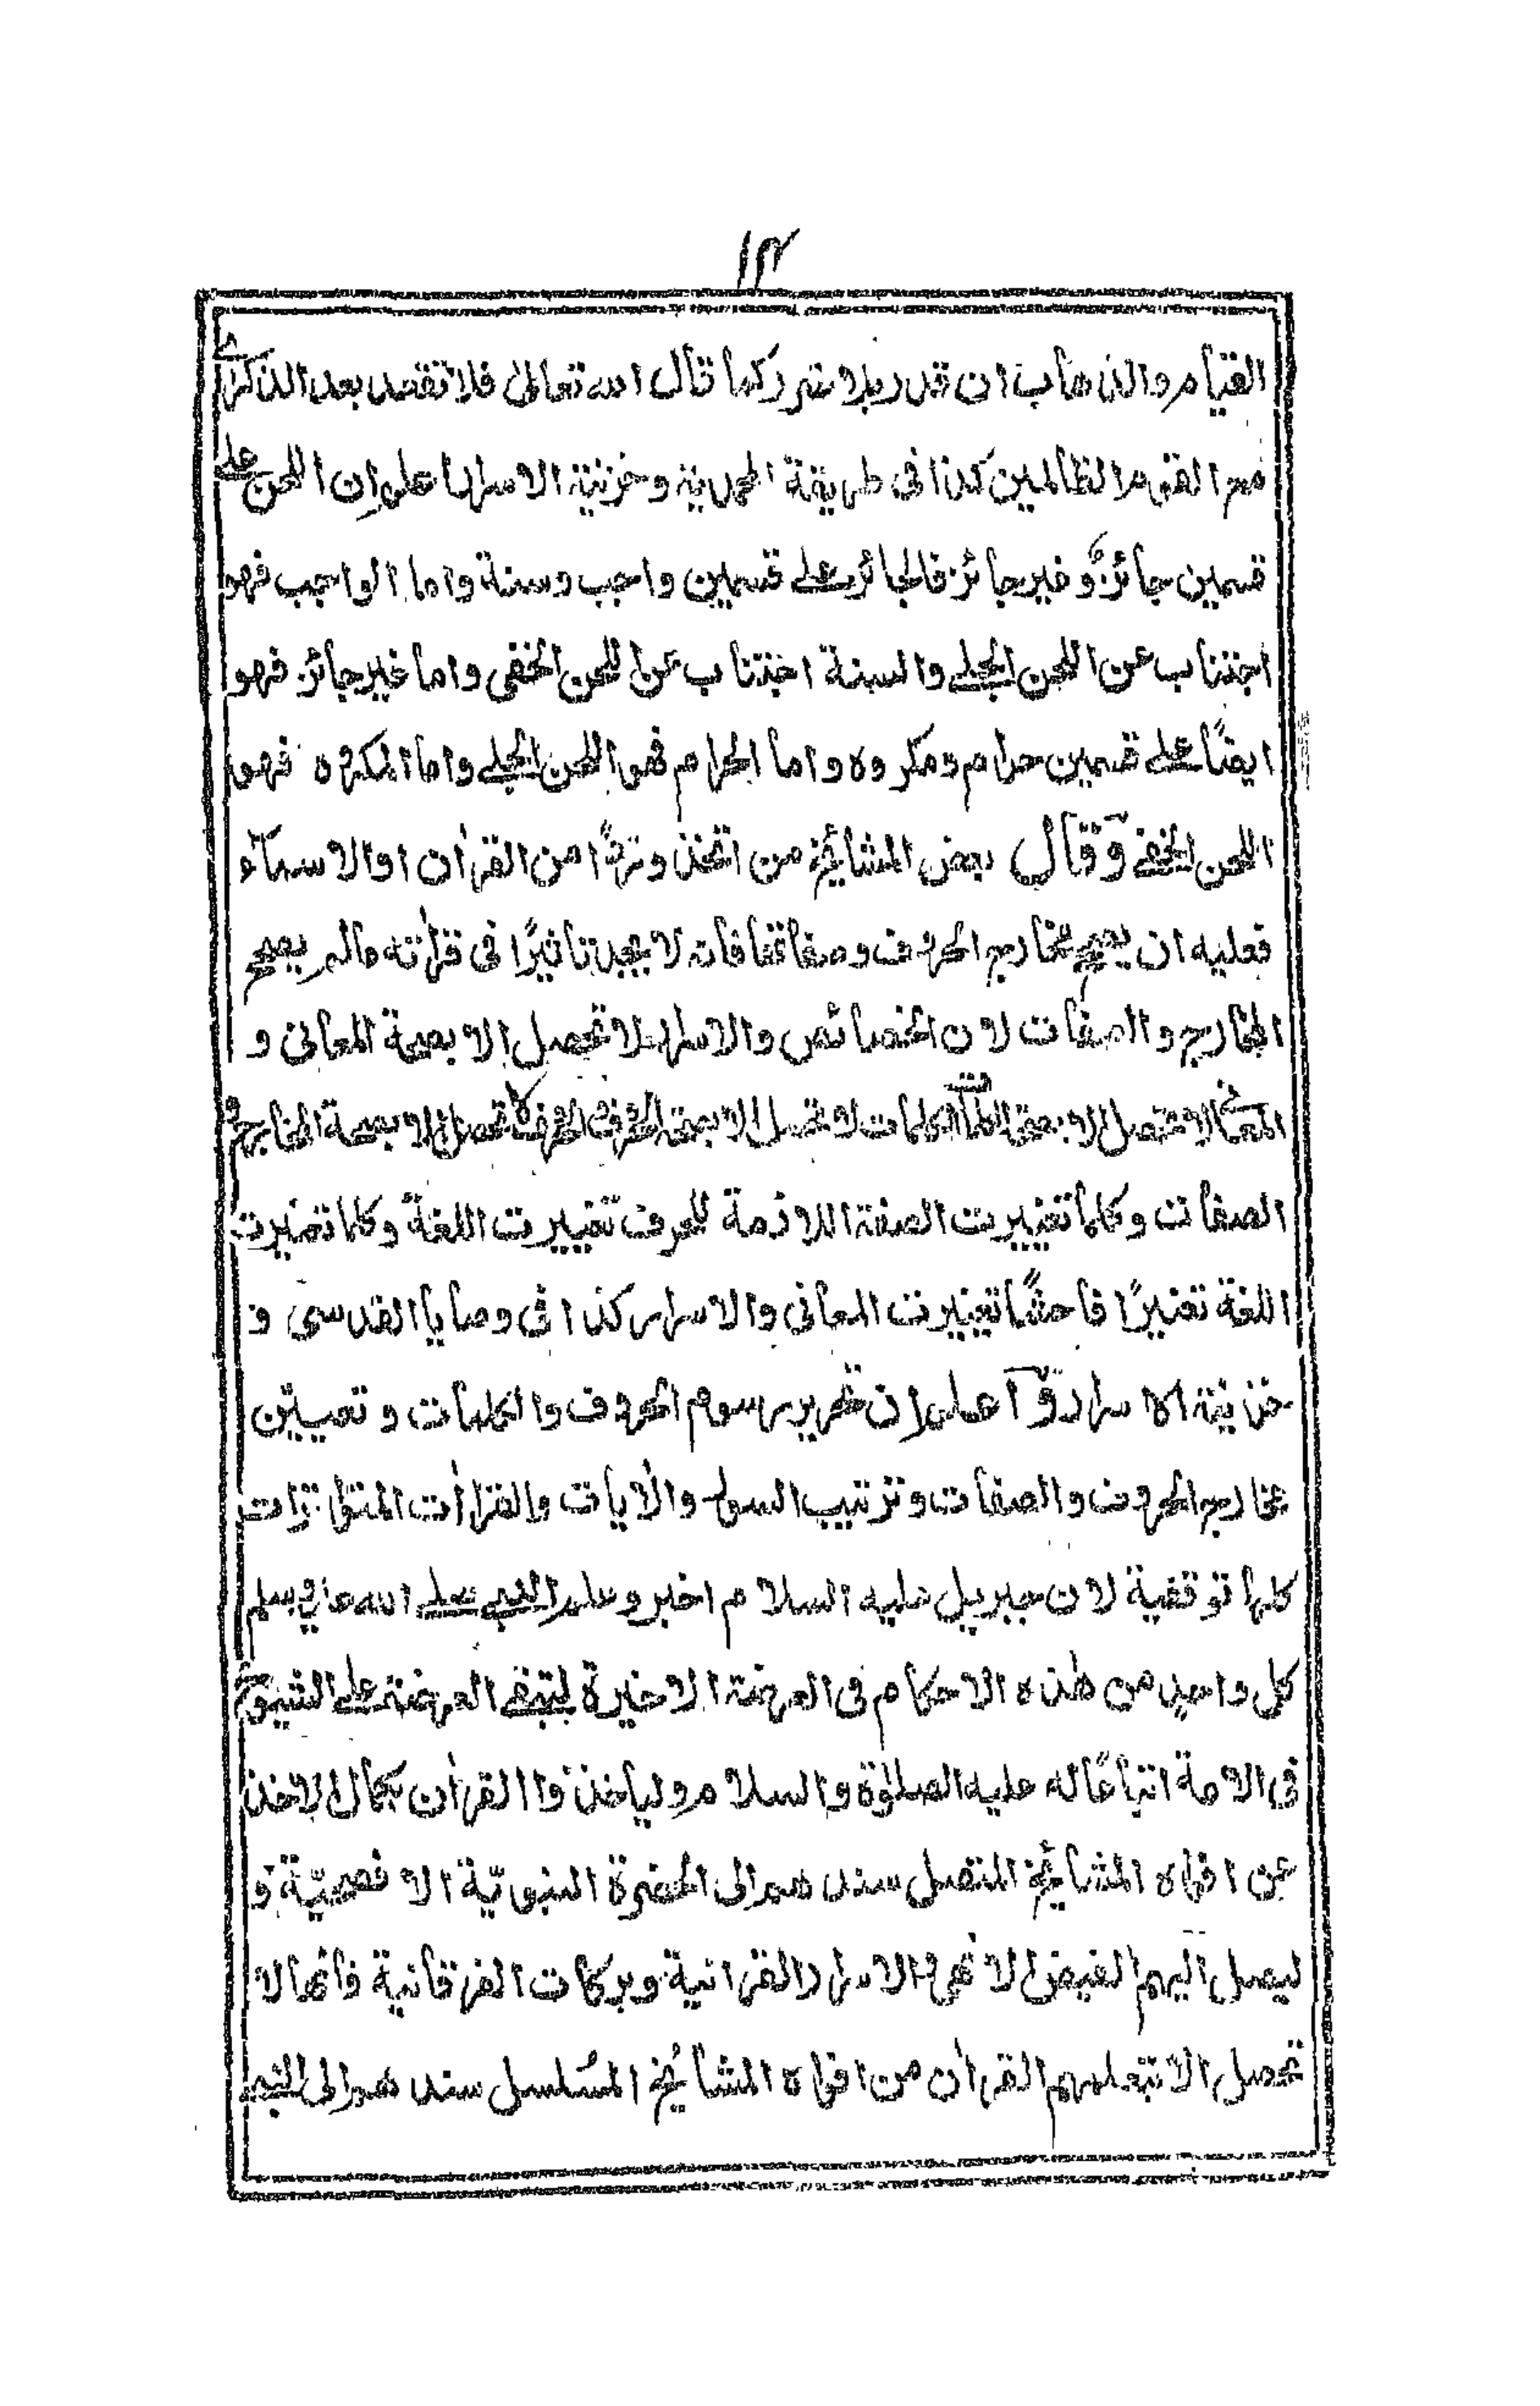 ١٣
القيام والذهاب ان قدر بلا شر كما قال الله تعالى فلا تقعد بعد الذكرى
مع القوم الظالمين كذا فى طريقة المحمدية وخزينة الاسرار اعلم ان اللحن على
قسمين جائز وغير جائز فالجائز على قسمين واجب وسنة واما الواجب فهو
اجتناب عن اللحن الجلى والسنة اجتناب عن اللحن الخفى واما غير جائز فهو
ايضًا على قسمين حرام ومكروه واما الحرام فهو اللحن الجلى واما المكروه فهو
اللحن الخفى وقال بعض المشائخ من اتخذ وردًا من القرأن او الاسمآء
فعليه ان يصحح مخارج الحروف وصفاتها فانه لا يجد تاثيرًا فى قرأته مالم يصحح
المخارج والصفات لان الخصائص والاسرار لا تحصل الا بصحة المعانى و
المعانى لا تحصل الا بصحة الكلمات لا تحصل الا بصحة الحروف الحروف لا تحصل الا بصحة المخارج و
الصفات وكلما تغييرت الصفة اللازمة للحرف تغييرت اللغة وكلما تغيرت
اللغة تغيرًا فاحشًا تغييرت المعانى والاسرار كذا فى وصايا القدسى و
خزينة الاسرار و اعلم ان تحرير رسوم الحروف والكلمات وتعيين
مخارج الحروف والصفات وترتيب السور والأيات والقرأت المتواترات
كلها توقفية لان جبريل عليه السلام اخبر وعلم النبى صلى الله عليه وسلم
كل واحد من هذه الاحكام فى العرضة الاخيرة ليبقى العرضة على الشيوخ
فى الامة اتباعًا له عليه الصلوة والسلام ولياخذوا القرأن بكمال الاخذ
عن افواه المشائخ المتصل سندهم الى الحضرة النبويّة الافصحيّة و
ليصل اليهم الفيض الاسرار القرانية وبركات الفرقانية فانها لا
تحصل الا بتعلمهم القرأن من افواه المشائخ المسلسل سندهم الى النبى